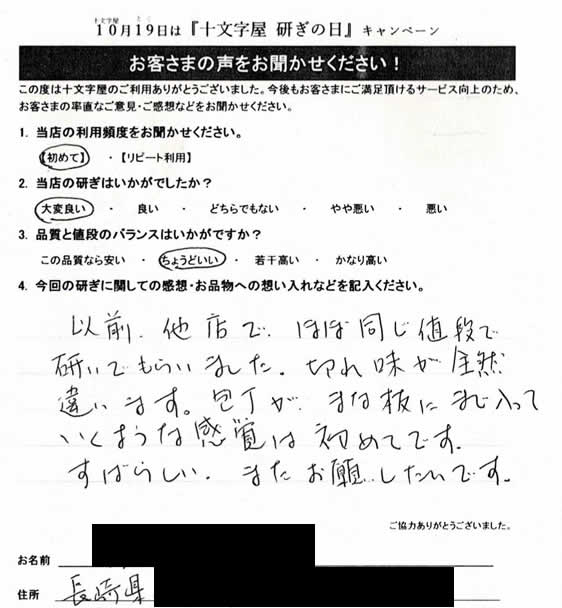 十文字屋 とぐ
10月19日は『十文字屋 研ぎの日』キャンペーン
お客さまの声をお聞かせください！
この度は十文字屋のご利用ありがとうございました。今後もお客さまにご満足頂けるサービス向上のため、
お客さまの率直なご意見・ご感想などをお聞かせください。
1. 当店の利用頻度をお聞かせください。
【初めて】 ・【リピート利用】
2. 当店の研ぎはいかがでしたか？
大変良い ・ 良い ・ どちらでもない ・ やや悪い ・ 悪い
3. 品質と値段のバランスはいかがですか？
この品質なら安い ・ ちょうどいい ・ 若干高い ・ かなり高い
4. 今回の研ぎに関しての感想・お品物への想い入れなどを記入ください。
以前、他店で、ほぼ同じ値段で
研いでもらいました。切れ味が全然
違います。包丁が、まな板にまで入って
いくような感覚は初めてです。
すばらしい。またお願いしたいです。
ご協力ありがとうございました。
お名前
住所 長崎県